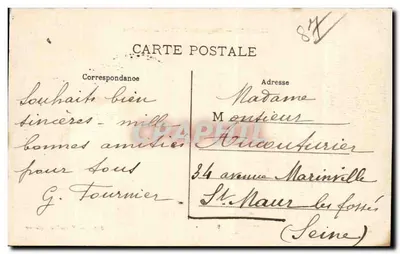 87
CARTE POSTALE
Correspondance
Adresse
Souhaits bien
sincères - mille
bonnes amitiés
pour tous
G. Fournier
Madame
Monsieur
Aucouturier
34 avenue Marinville
St Maur les fossés
(Seine)